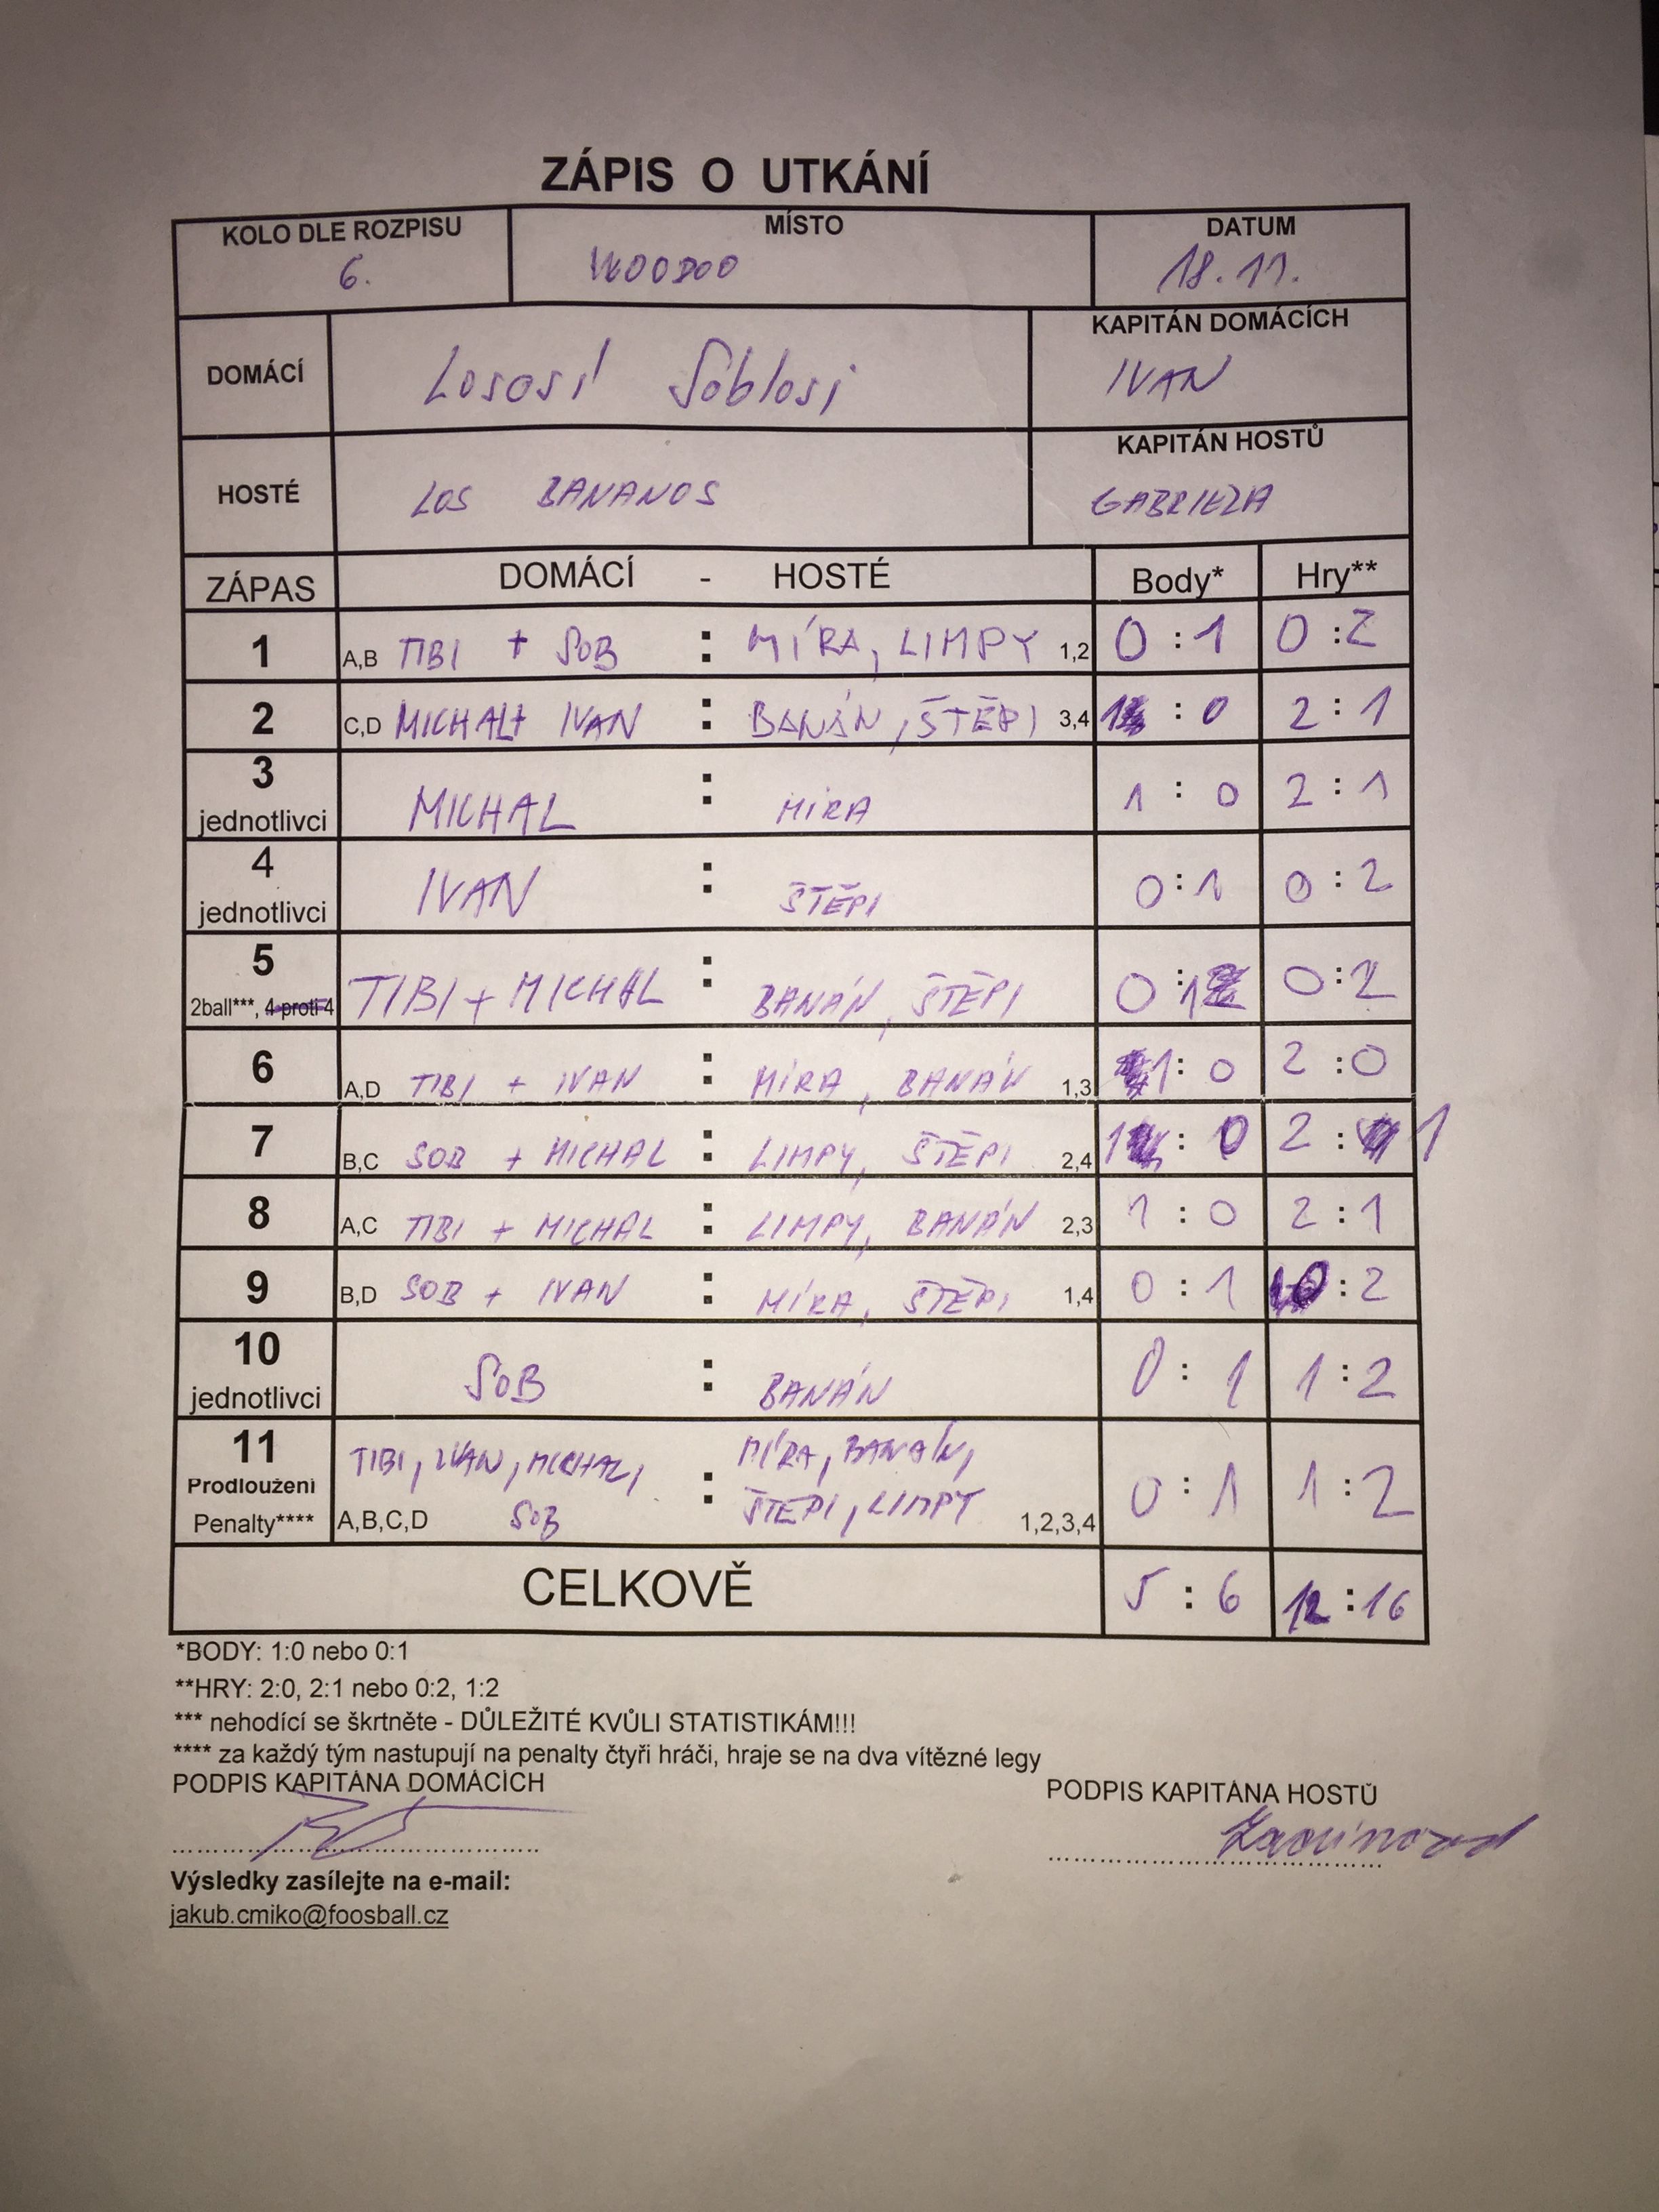 ZÁPIS O UTKÁNÍ
KOLO DLE ROZPISU MÍSTO DATUM
6. WOODOO 18.11.
DOMÁCÍ Lososí Sóblosi KAPITÁN DOMÁCÍCH
IVAN
HOSTÉ LOS BANANOS KAPITÁN HOSTŮ
GABRIELA
ZÁPAS DOMÁCÍ - HOSTÉ Body* Hry**
1 A,B TIBI + SOB : MÍRA, LIMPY 1,2 0 : 1 0 : 2
2 C,D MICHAL + IVAN : BANÁN, ŠTĚPI 3,4 1 : 0 2 : 1
3 jednotlivci MICHAL : MÍRA 1 : 0 2 : 1
4 jednotlivci IVAN : ŠTĚPI 0 : 1 0 : 2
5 2ball***, 4 proti 4 TIBI + MICHAL : BANÁN, ŠTĚPI 0 : 1 0 : 2
6 A,D TIBI + IVAN : MÍRA, BANÁN 1,3 1 : 0 2 : 0
7 B,C SOB + MICHAL : LIMPY, ŠTĚPI 2,4 1 : 0 2 : 1
8 A,C TIBI + MICHAL : LIMPY, BANÁN 2,3 1 : 0 2 : 1
9 B,D SOB + IVAN : MÍRA, ŠTĚPI 1,4 0 : 1 0 : 2
10 jednotlivci SOB : BANÁN 0 : 1 1 : 2
11 Prodloužení TIBI, IVAN, MICHAL, : MÍRA, BANÁN, 0 : 1 1 : 2
Penalty**** A,B,C,D SOB ŠTEPI, LIMPY 1,2,3,4
CELKOVĚ 5 : 6 12 : 16
*BODY: 1:0 nebo 0:1
**HRY: 2:0, 2:1 nebo 0:2, 1:2
*** nehodící se škrtněte - DŮLEŽITÉ KVŮLI STATISTIKÁM!!!
**** za každý tým nastupují na penalty čtyři hráči, hraje se na dva vítězné legy
PODPIS KAPITÁNA DOMÁCÍCH PODPIS KAPITÁNA HOSTŮ
Výsledky zasílejte na e-mail:
jakub.cmiko@foosball.cz